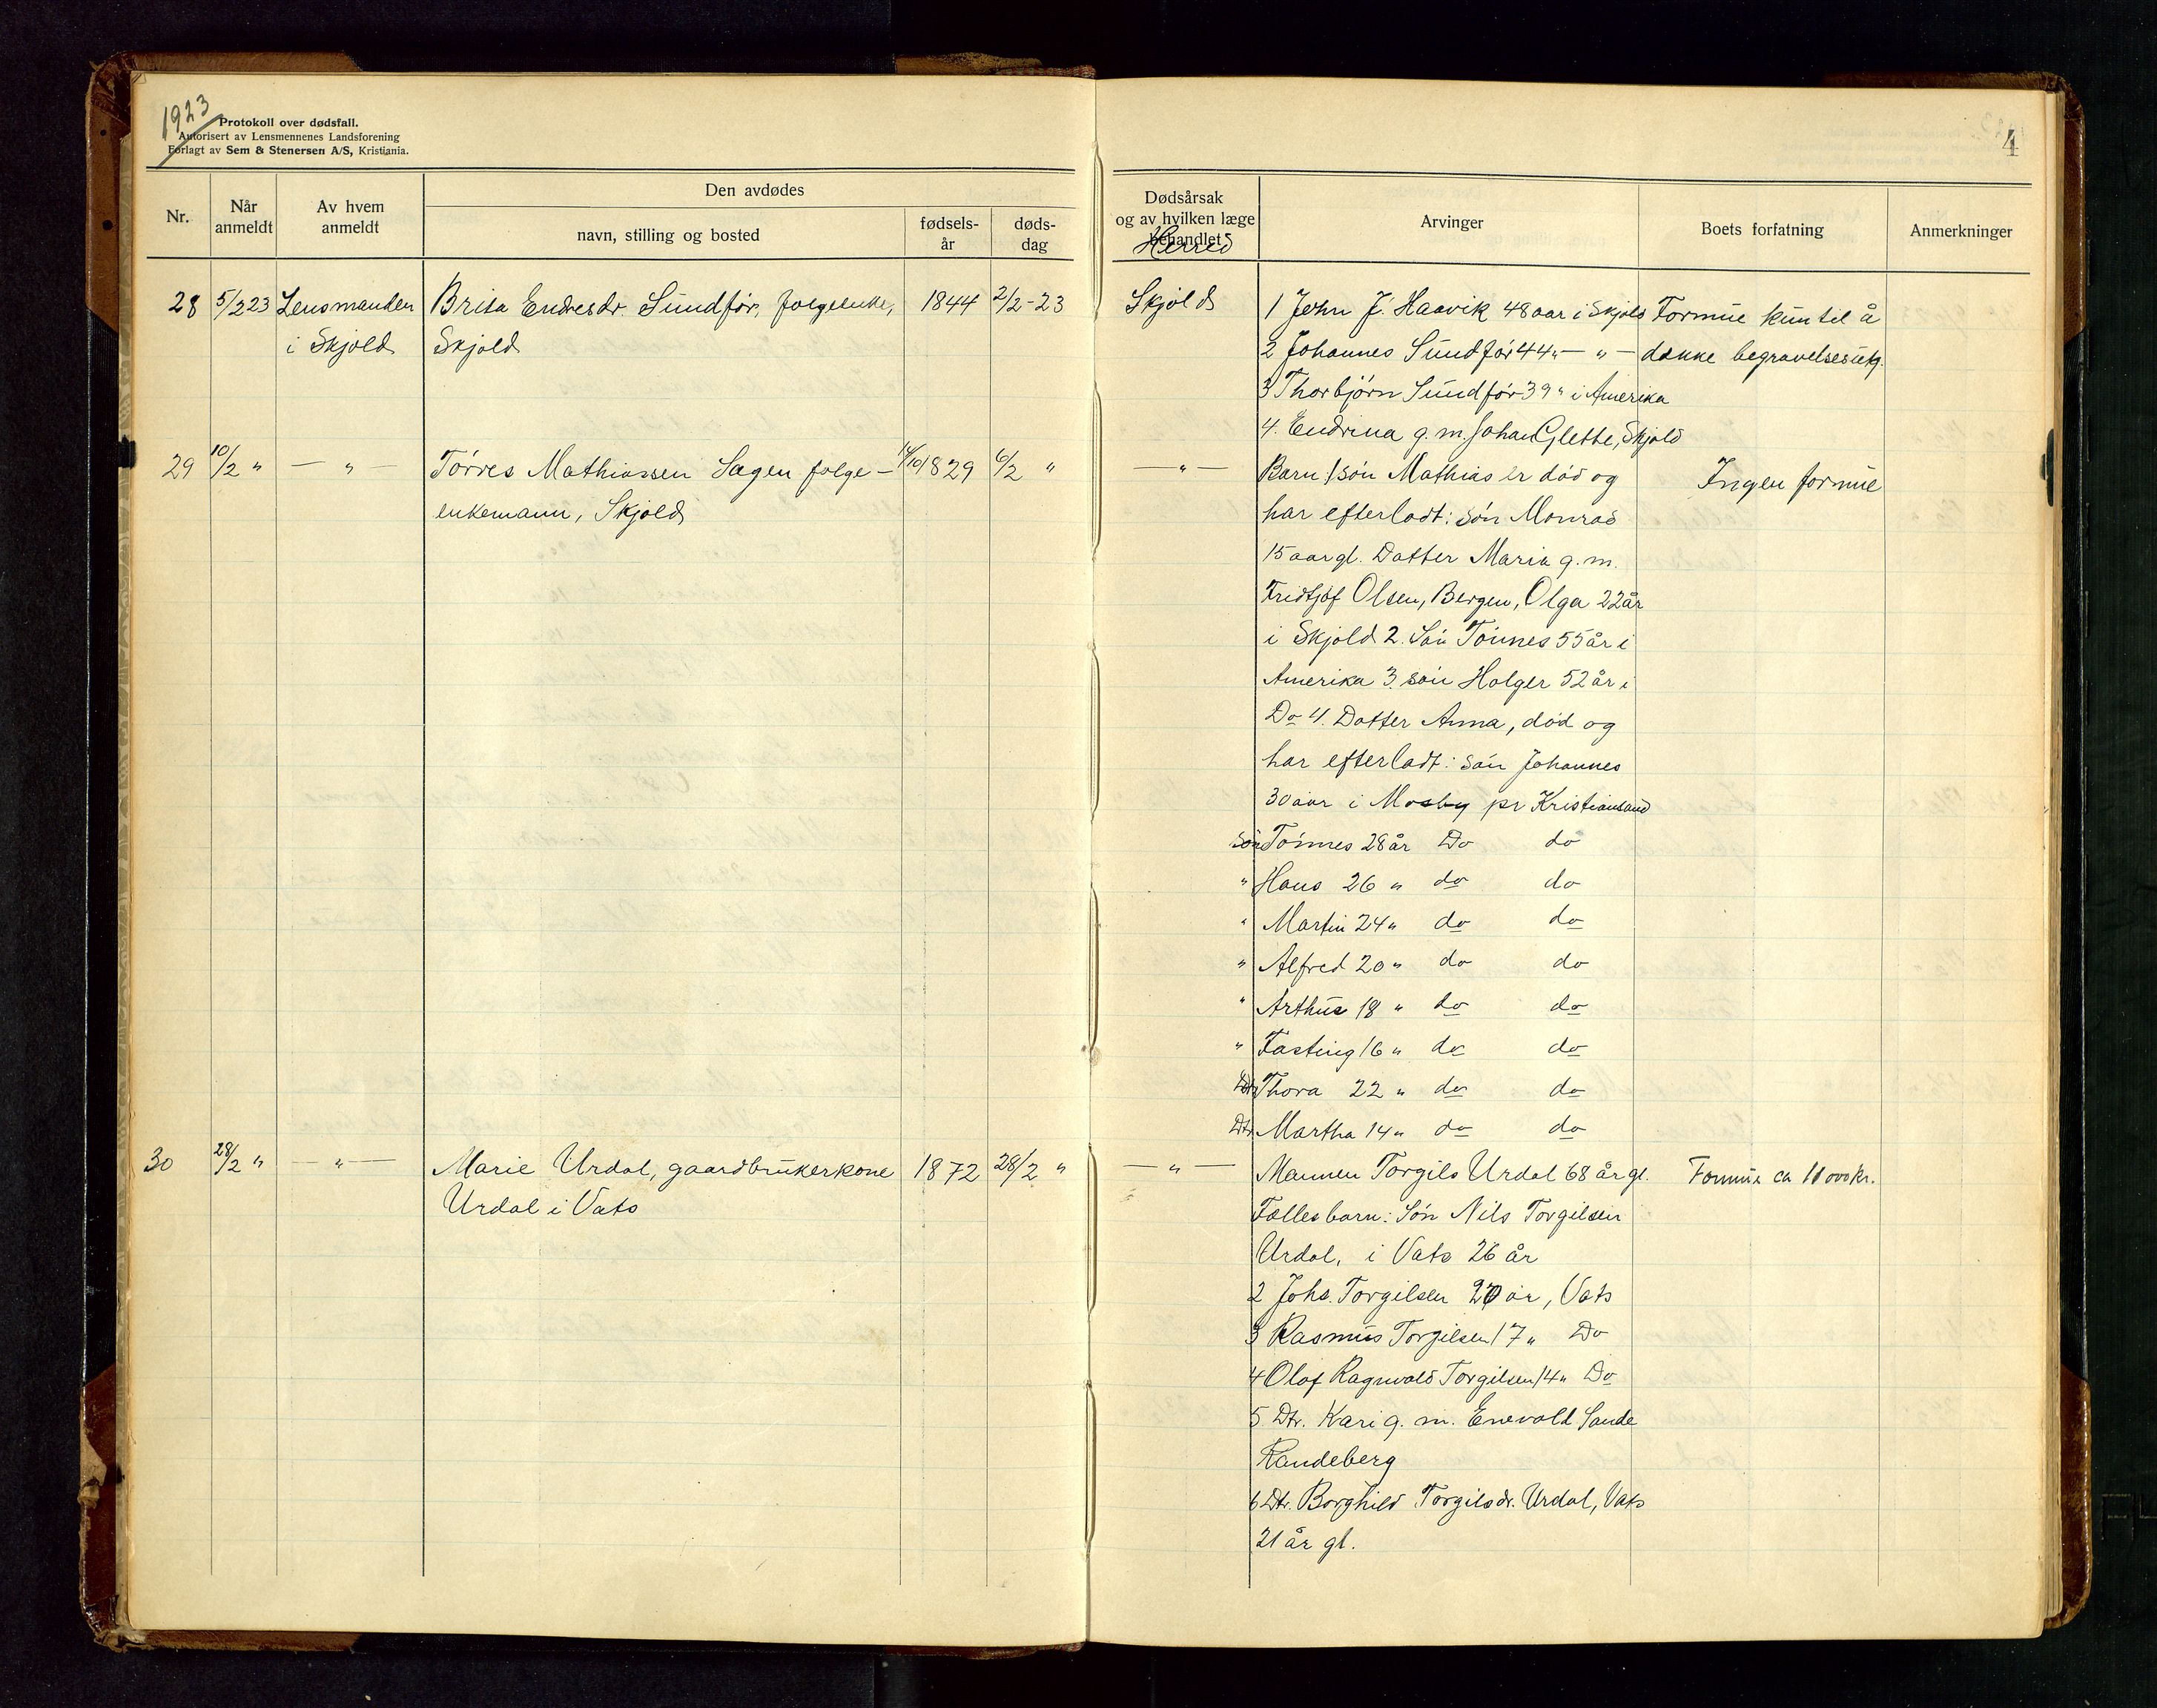 1923
Protokoll over dødsfall.
Autorisert av Lensmennenes Landsforening
Forlagt av Sem & Stenersen A/S, Kristiania.
4
Nr.
Når anmeldt
Av hvem anmeldt
Den avdødes
navn, stilling og bosted
fødselsår
dødsdag
Dødsårsak
og av hvilken læge
behandlet
Herred
Arvinger
Boets forfatning
Anmerkninger
28 5/2 23 Lensmanden Brita Endresdr. Sundför, folgeenke, 1844 2/2-23 Skjold 1 John J. Haavik 48 aar i Skjold Formue kun til å
i Skjold Skjold 2 Johannes Sundför 44 " — " — dække begravelsesutg.
3 Thorbjörn Sundför 39 " i Amerika
4. Endrina g.m. Johan Glette, Skjold
29 10/2 " — " — Törres Mathiassen Sagen folge- 14/10 1829 6/2 " — " — Barn: 1 sön Mathias er död og Ingen formue
enkemann, Skjold har efterladt: sön Monrad
15 aar gl. Datter Maria g.m.
Fridtjof Olsen, Bergen, Olga 22 år
i Skjold 2. Sön Tönnes 55 år i
Amerika 3. sön Holger 52 år i
Do 4. Datter Anna, död og
har efterladt: sön Johannes
30 aar i Mosby pr Kristiansand
sön Tönnes 28 år Do do
" Hans 26 " do do
" Martin 24 " do do
" Alfred 20 " do do
" Arthur 18 " do do
" Fasting 16 " do do
Dtr Thora 22 " do do
Dtr. Martha 14 " do do
30 28/2 " — " — Marie Urdal, gaardbrukerkone 1872 28/2 " — " — Mannen Torgils Urdal 68 år gl. Formue ca 11 000 kr.
Urdal i Vats Fællesbarn: Sön Nils Torgilsen
Urdal, i Vats 26 år
2 Johs. Torgilsen 20 år, Vats
3 Rasmus Torgilsen 17 " Do
4 Olaf Ragnvald Torgilsen 14 " Do
5. Dtr. Kari g. m. Enevald Sande
Randeberg
6 Dtr. Borghild Torgilsdr. Urdal, Vats
21 år gl.